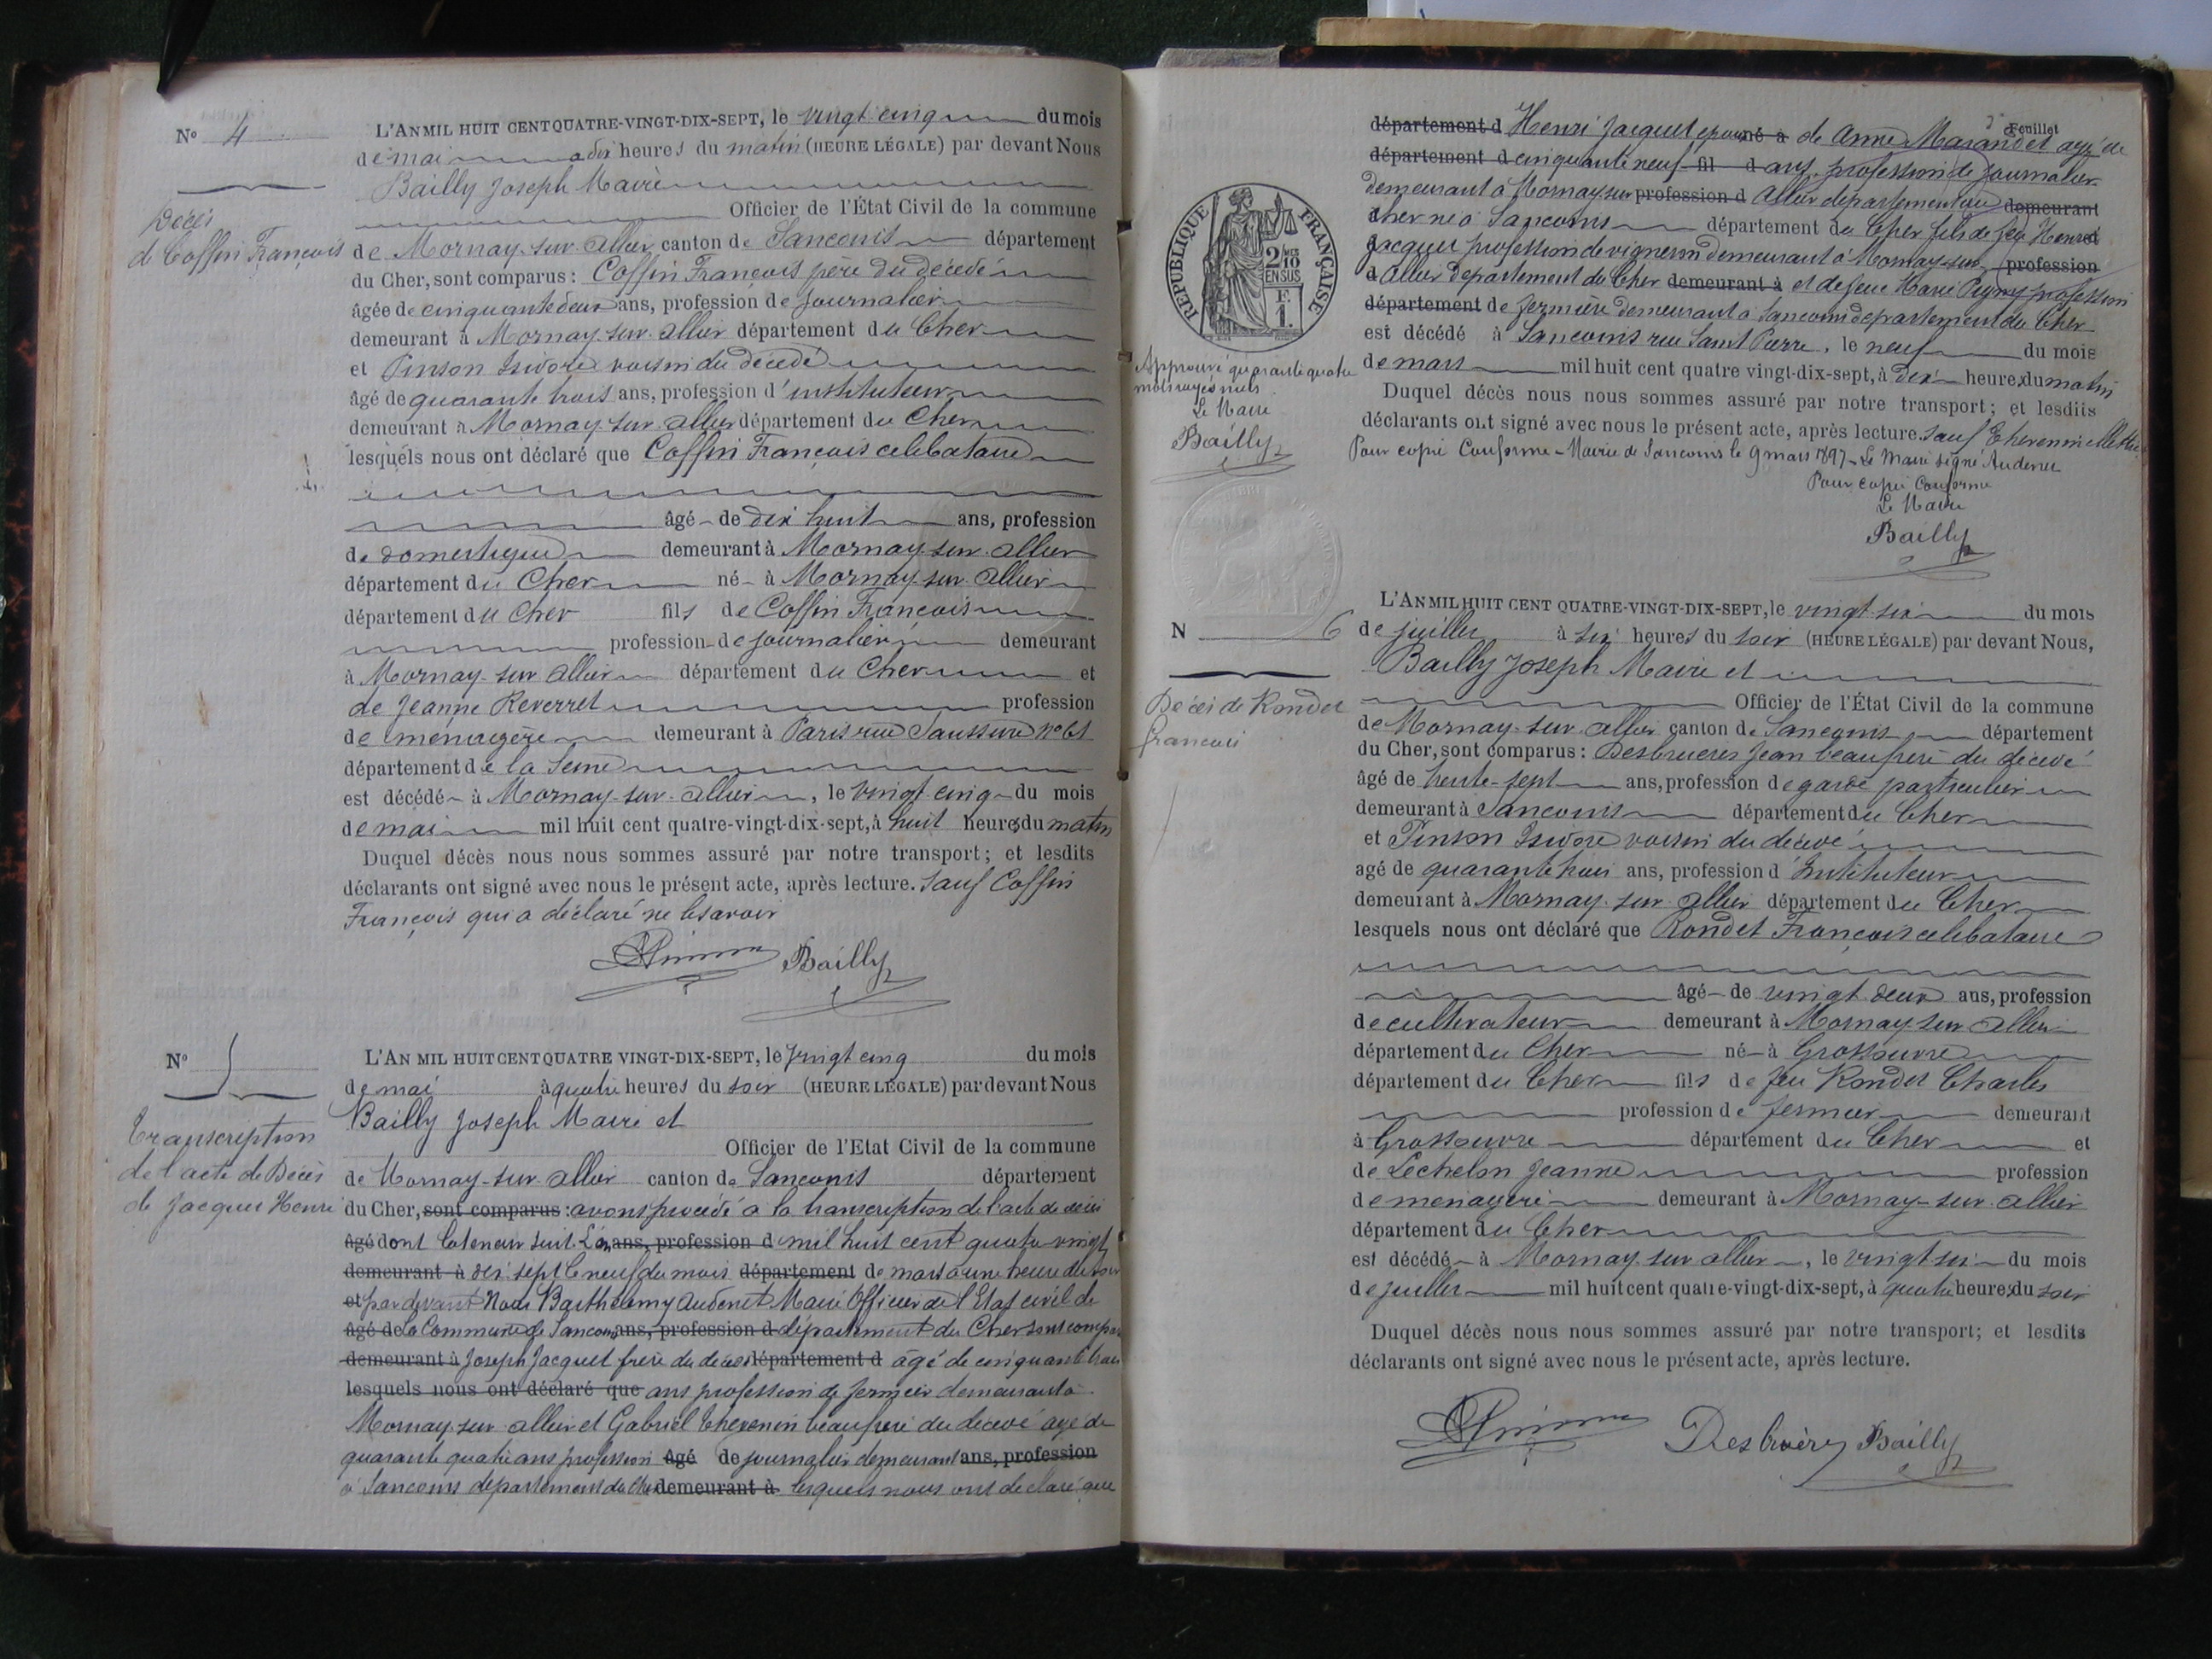 N° 4
Décès
de Coffin François
L'AN MIL HUIT CENT QUATRE-VINGT-DIX-SEPT, le vingt cinq du mois
de mai à dix heures du matin (HEURE LÉGALE) par devant Nous
Bailly Joseph Maire
Officier de l'État Civil de la commune
de Mornay-sur-Allier canton de Sancoins département
du Cher, sont comparus : Coffin François père du décédé
âgée de cinquante deux ans, profession de journalier
demeurant à Mornay-sur-Allier département du Cher
et Pinson Isidore voisin du décédé
âgé de quarante trois ans, profession d'instituteur
demeurant à Mornay-sur-Allier département du Cher
lesquels nous ont déclaré que Coffin François celibataire
âgé de dix huit ans, profession
de domestique demeurant à Mornay-sur-Allier
département du Cher né à Mornay-sur-Allier
département du Cher fils de Coffin François
profession de journalier demeurant
à Mornay-sur-Allier département du Cher et
de Jeanne Reverret profession
de menagère demeurant à Paris rue Saussure N° 61
département de la Seine
est décédé à Mornay-sur-Allier, le vingt cinq du mois
de mai mil huit cent quatre-vingt-dix-sept, à huit heures du matin
Duquel décès nous nous sommes assuré par notre transport; et lesdits
déclarants ont signé avec nous le présent acte, après lecture. Sauf Coffin
François qui a déclaré ne le savoir
Pinson Bailly
N° 5
Transcription
de l'acte de Décès
de Jacquet Henri
L'AN MIL HUIT CENT QUATRE VINGT-DIX-SEPT, le vingt cinq du mois
de mai à quatre heures du soir (HEURE LÉGALE) par devant Nous
Bailly Joseph Maire et
Officier de l'Etat Civil de la commune
de Mornay-sur-Allier canton de Sancoins département
du Cher, sont comparus : avons procédé à la transcription de l'acte de décès
âgé dont la teneur suit. L'an ans, profession d mil huit cent quatre vingt
demeurant à dix sept le neuf du mois département de mars à une heure du soir
et par devant Nous Barthélemy Audenet Maire Officier de l'Etat civil de
âgé de la Commune de Sancoins ans, profession d département du Cher sont compar
demeurant à Joseph Jacquet frère du décédé département d âgé de cinquante trois
lesquels nous ont déclaré que ans profession de fermier demeurant à
Mornay-sur-Allier et Gabriel Thevenin beau frère du décédé âgé de
quarante quatre ans profession âgé de journalier demeurant ans, profession
à Sancoins département du Cher demeurant à lesquels nous ont déclaré que
3e Feuillet
département d Henri Jacquet epoux né à de Anne Marandet agé de
département d cinquante neuf fil d ans, profession de Journalier
demeurant à Mornay sur profession d Allier département du demeurant
à Cher né à Sancoins département du Cher fils de feu Henri et
Jacquet profession de vigneron demeurant à Mornay-sur profession
d Allier département du Cher demeurant à et de feue Marie Pugny profession
département de fermière demeurant à Sancoins département du Cher
est décédé à Sancoins rue Saint Pierre, le neuf du mois
de mars mil huit cent quatre vingt-dix-sept, à dix heures du matin
Duquel décès nous nous sommes assuré par notre transport; et lesdits
déclarants ont signé avec nous le présent acte, après lecture. Sauf Thevenin
Pour copie Conforme - Mairie de Sancoins le 9 mars 1897 - Le Maire signé Audenet
Pour copie Conforme
Le Maire
Bailly
REPUBLIQUE FRANÇAISE
2/10
EN SUS
F.
1.
Approuvé quarante quatre
mots rayés nuls
Le Maire
Bailly
N 6
Décès de Rondet
François
L'AN MIL HUIT CENT QUATRE-VINGT-DIX-SEPT, le vingt six du mois
de juillet à six heures du soir (HEURE LÉGALE) par devant Nous,
Bailly Joseph Maire et
Officier de l'État Civil de la commune
de Mornay-sur-Allier canton de Sancoins département
du Cher, sont comparus : Desbruères Jean beau frère du décédé
âgé de trente-sept ans, profession de garde particulier
demeurant à Sancoins département du Cher
et Pinson Isidore voisin du décédé
agé de quarante trois ans, profession d'Instituteur
demeurant à Mornay-sur-Allier département du Cher
lesquels nous ont déclaré que Rondet François celibataire
âgé de vingt deux ans, profession
de cultivateur demeurant à Mornay-sur-Allier
département du Cher né à Grossouvre
département du Cher fils de feu Rondet Charles
profession de fermier demeurant
à Grossouvre département du Cher et
de Lechelon Jeanne profession
de menagère demeurant à Mornay-sur-Allier
département du Cher
est décédé à Mornay-sur-Allier, le vingt six du mois
de juillet mil huit cent quatre-vingt-dix-sept, à quatre heures du soir
Duquel décès nous nous sommes assuré par notre transport; et lesdits
déclarants ont signé avec nous le présent acte, après lecture.
Pinson Desbruères Bailly